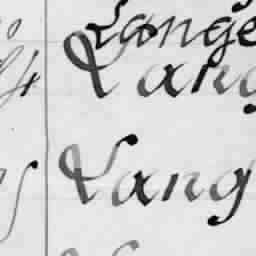 Lange
Lang
Lang